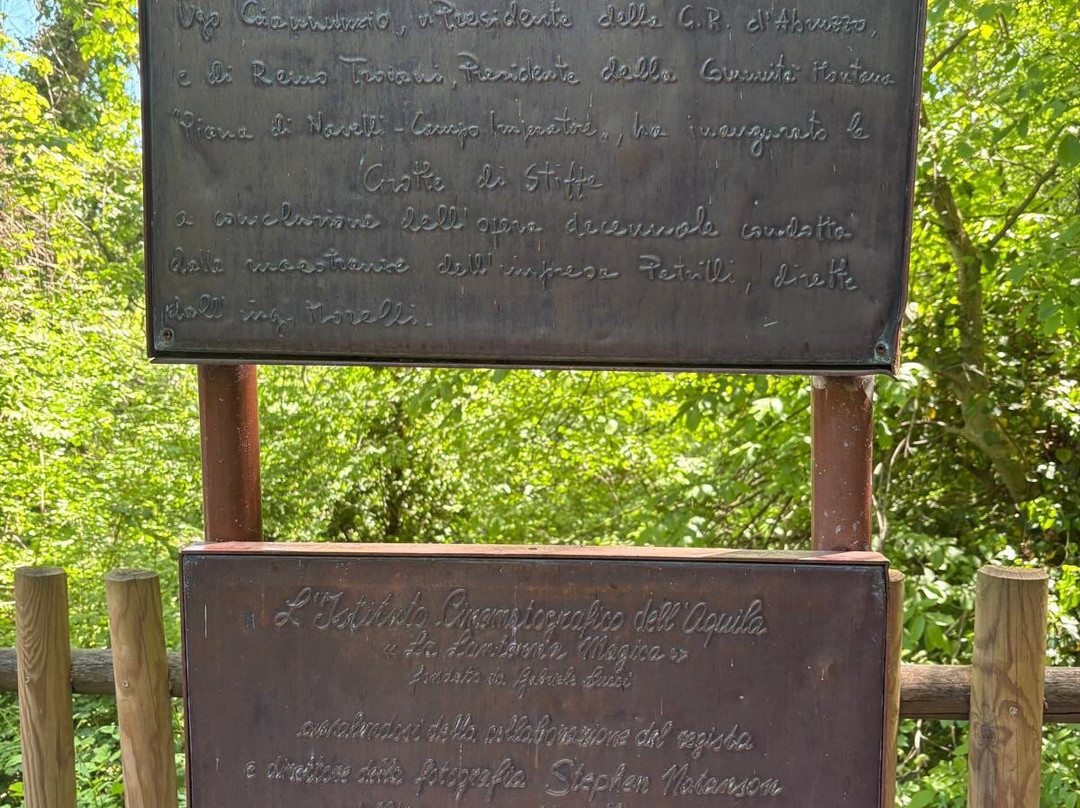 Ugo Giannunzio, v. Presidente della G.R. d'Abruzzo,
e di Remo Troiani, Presidente della Comunità Montana
"Piana di Navelli - Campo Imperatore", ha inaugurato le
Grotte di Stiffe
a conclusione dell'opera decennale condotta
dalle maestranze dell'impresa Petrilli, dirette
dall'ing. Morelli.
L'Istituto Cinematografico dell'Aquila
«La Lanterna Magica»
fondato da Gabriele Lucci
avvalendosi della collaborazione del regista
e direttore della fotografia Stephen Natanson